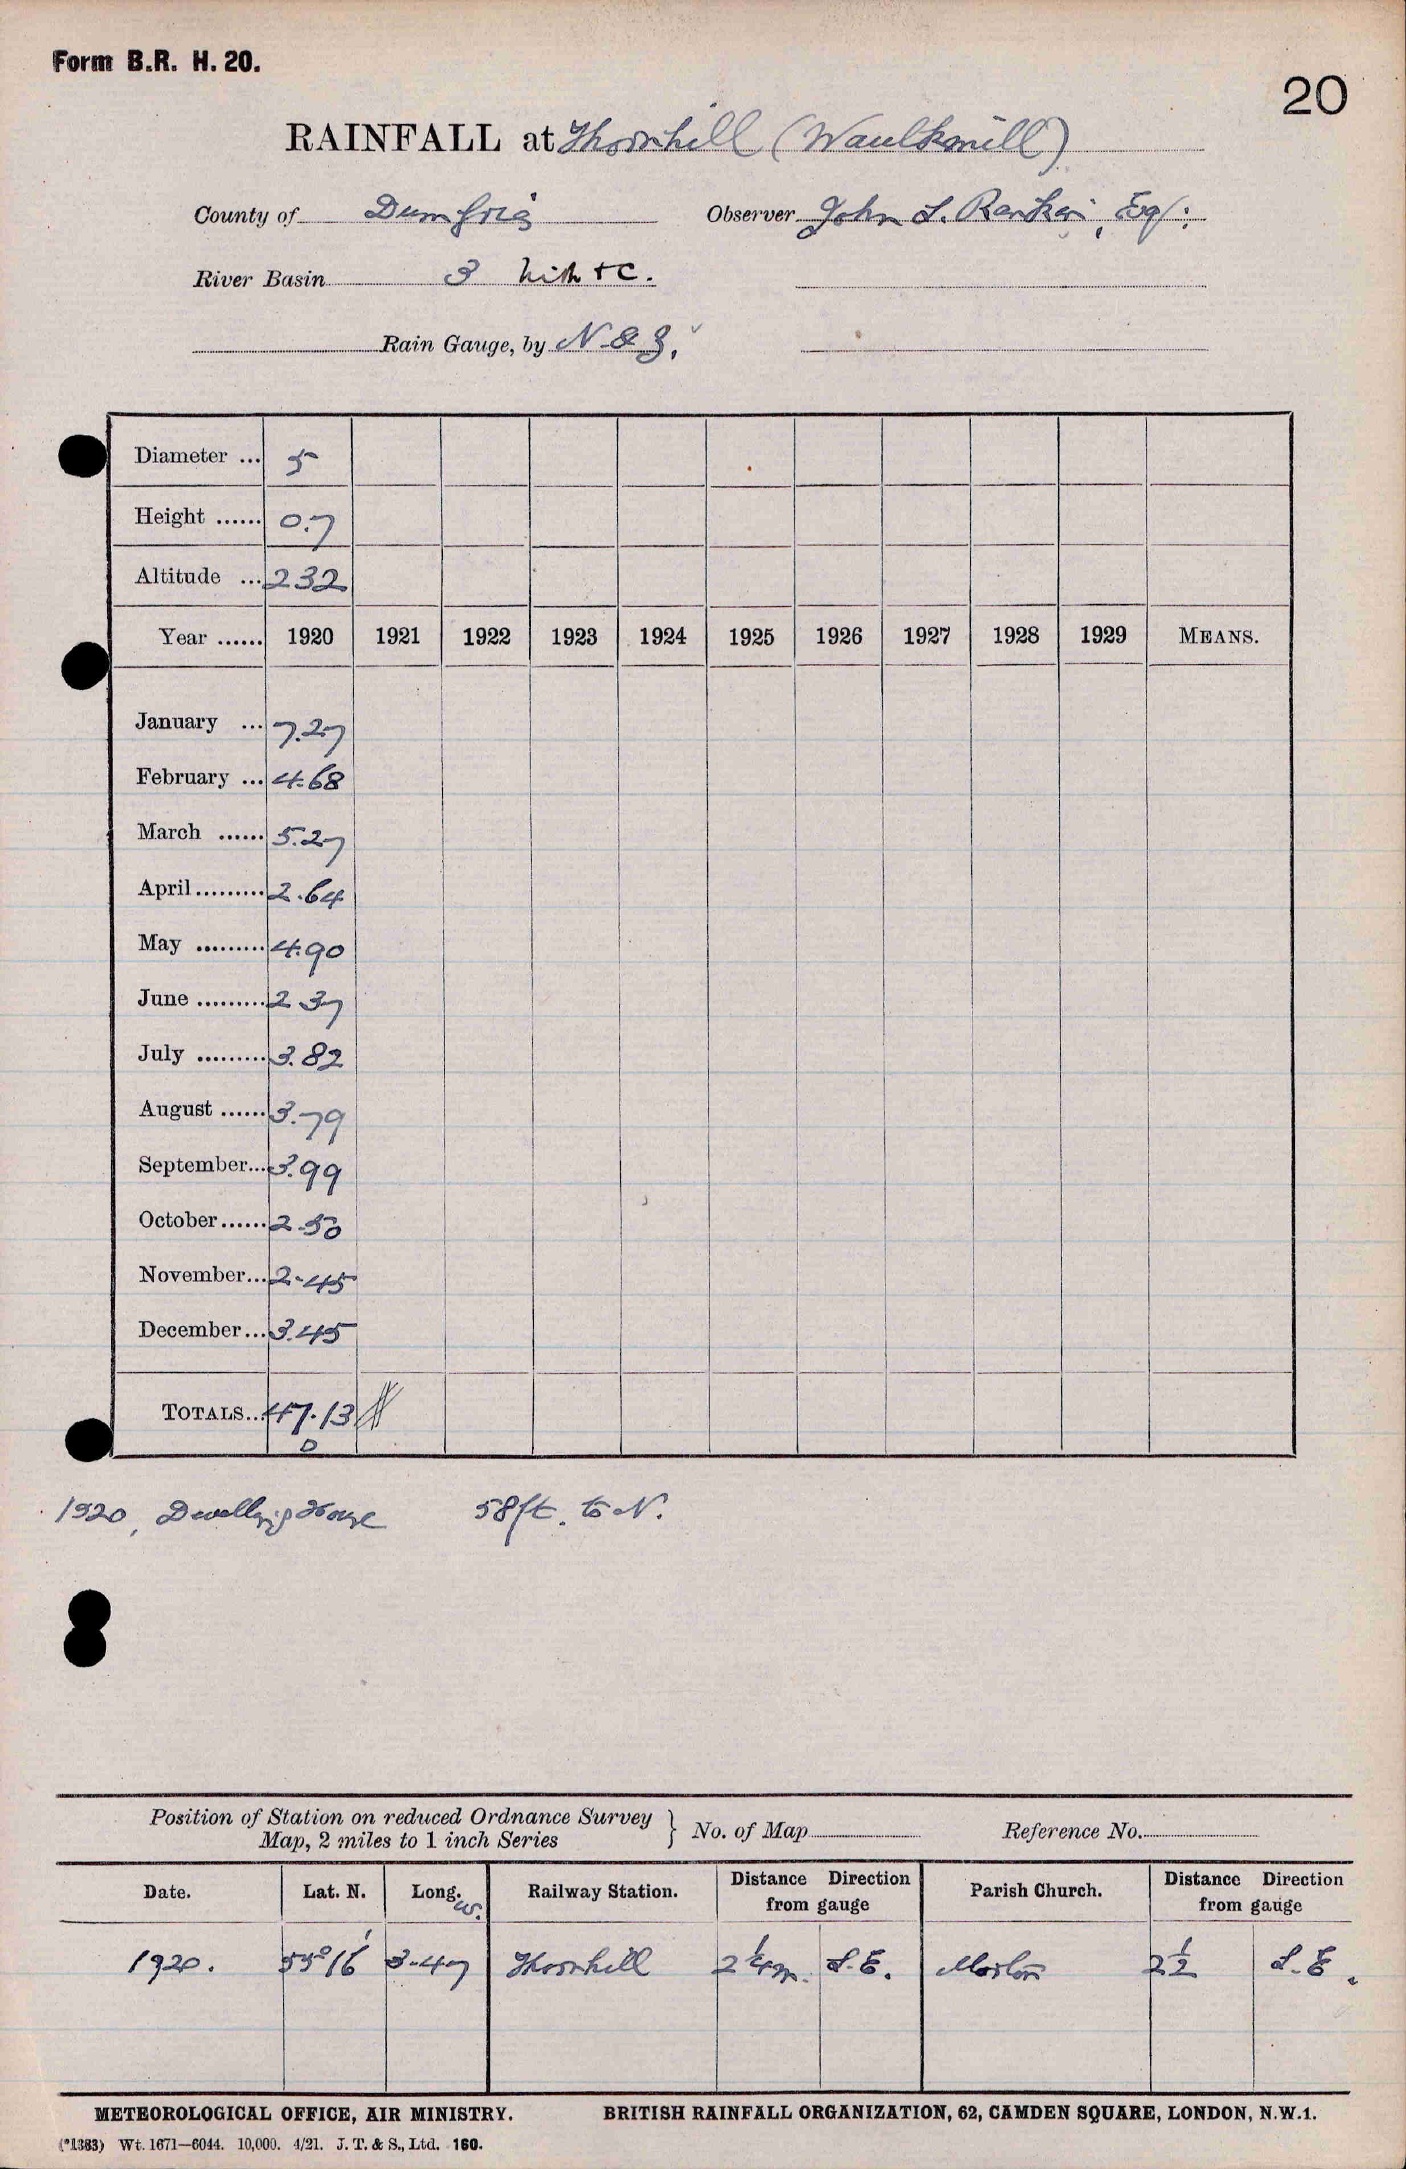 Form B.R. H. 20.
20
RAINFALL at Thornhill (Waulkmill)
County of Dumfries Observer John L. Rankin, Esq:
River Basin 3 Nith &c.
Rain Gauge, by N & Z.
Diameter ... 5
Height ...... 0.7
Altitude ... 232
Year ...... 1920 1921 1922 1923 1924 1925 1926 1927 1928 1929 MEANS.
January ... 7.27
February ... 4.68
March ...... 5.27
April ......... 2.64
May ......... 4.90
June ......... 2.37
July ......... 3.82
August ...... 3.79
September... 3.99
October ...... 2.50
November... 2.45
December ... 3.45
TOTALS... 47.13
D
1920, Dwelling House 58 ft. to N.
Position of Station on reduced Ordnance Survey
Map, 2 miles to 1 inch Series } No. of Map Reference No.
Date. Lat. N. Long. W. Railway Station. Distance Direction from gauge Parish Church. Distance Direction from gauge
1920. 55° 16' 3.47 Thornhill 2¼ m. S.E. Morton 2½ S.E.
METEOROLOGICAL OFFICE, AIR MINISTRY. BRITISH RAINFALL ORGANIZATION, 62, CAMDEN SQUARE, LONDON, N.W.1.
(*1383) Wt. 1671—6044. 10,000. 4/21. J. T. & S., Ltd. 160.